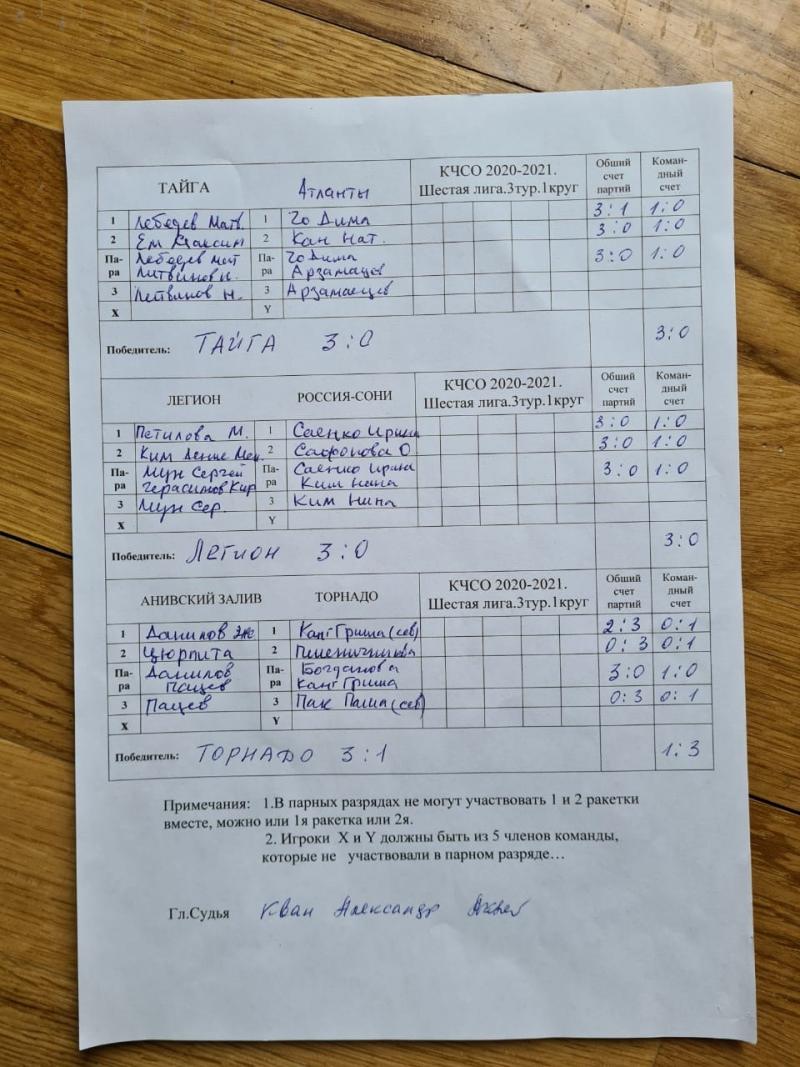 ТАЙГА Атланты КЧСО 2020-2021. Шестая лига.3тур.1круг Общий счет партий Коман-дный счет
1 Лебедев Матв. 1 Чо Дима 3:1 1:0
2 Ем Максим 2 Кан Нат. 3:0 1:0
Па-ра Лебедев мат Па-ра Чо Дима 3:0 1:0
Литвинов н. Арзамасцев
3 Литвинов Н. 3 Арзамасцев
X Y
Победитель: ТАЙГА 3:0 3:0
ЛЕГИОН РОССИЯ-СОНИ КЧСО 2020-2021. Шестая лига.3тур.1круг Общий счет партий Коман-дный счет
1 Петилова М. 1 Саенко Ирина 3:0 1:0
2 Ким Денис 2 Сафонова О 3:0 1:0
Па-ра Мун Сергей Па-ра Саенко Ирина 3:0 1:0
Герасимов Кир Ким Нина
3 Мун Сер. 3 Ким Нина
X Y
Победитель: Легион 3:0 3:0
АНИВСКИЙ ЗАЛИВ ТОРНАДО КЧСО 2020-2021. Шестая лига.3тур.1круг Общий счет партий Коман-дный счет
1 Данилов Эже 1 Канг Гриша (сев) 2:3 0:1
2 Цюрпита 2 Пшеничникова 0:3 0:1
Па-ра Данилов Па-ра Богданова 3:0 1:0
Пацев Канг Гриша
3 Пацев 3 Пак Паша (сев) 0:3 0:1
X Y
Победитель: ТОРНАДО 3:1 1:3
Примечания: 1.В парных разрядах не могут участвовать 1 и 2 ракетки
вместе, можно или 1я ракетка или 2я.
2. Игроки X и Y должны быть из 5 членов команды,
которые не участвовали в парном разряде…
Гл.Судья Кван Александр